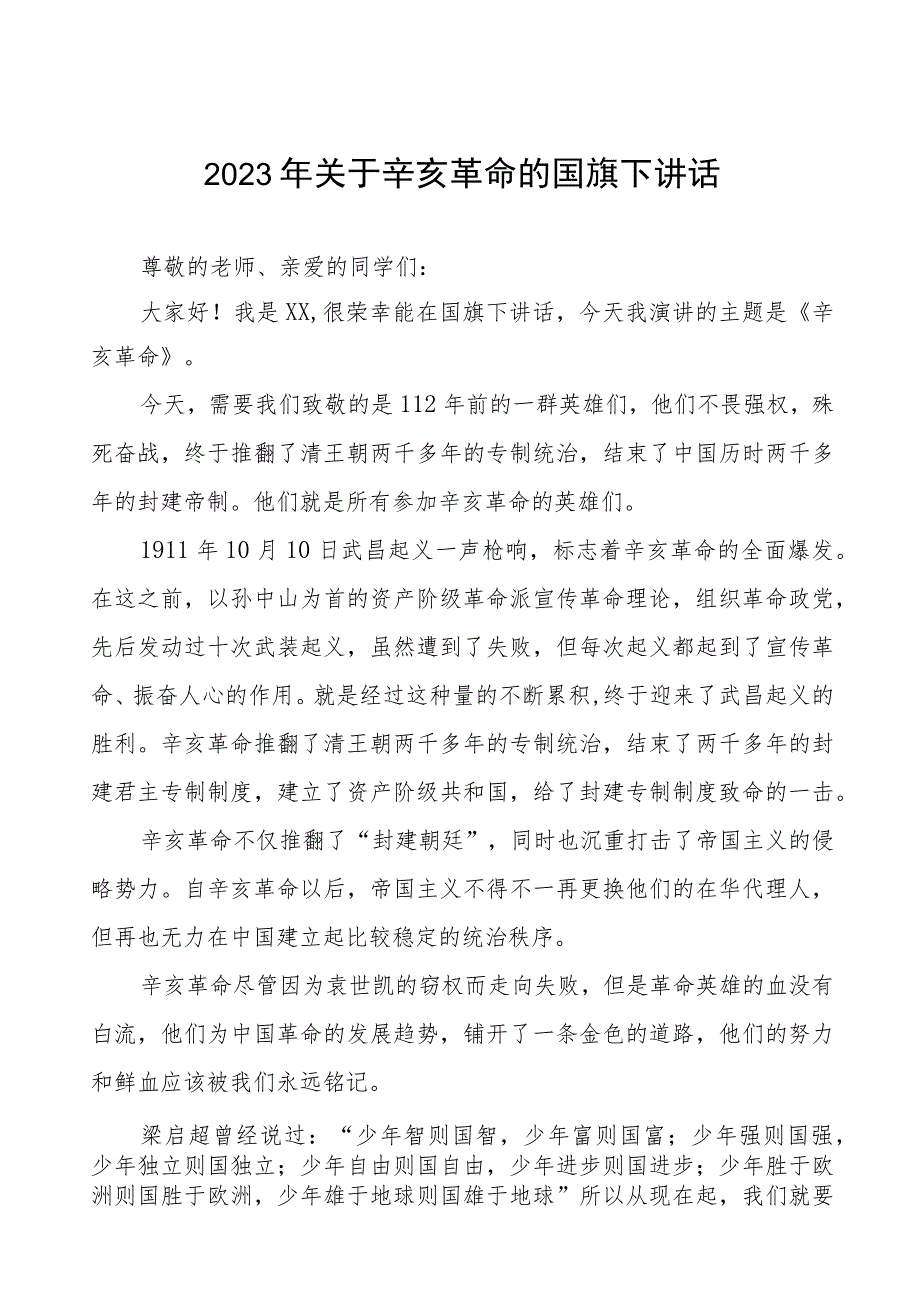 2023年关于辛亥革命的国旗下讲话
尊敬的老师、亲爱的同学们：
大家好！我是XX,很荣幸能在国旗下讲话，今天我演讲的主题是《辛
亥革命》。
今天，需要我们致敬的是112年前的一群英雄们，他们不畏强权，殊
死奋战，终于推翻了清王朝两千多年的专制统治，结束了中国历时两千多
年的封建帝制。他们就是所有参加辛亥革命的英雄们。
1911年10月10日武昌起义一声枪响，标志着辛亥革命的全面爆发。
在这之前，以孙中山为首的资产阶级革命派宣传革命理论，组织革命政党，
先后发动过十次武装起义，虽然遭到了失败，但每次起义都起到了宣传革
命、振奋人心的作用。就是经过这种量的不断累积,终于迎来了武昌起义的
胜利。辛亥革命推翻了清王朝两千多年的专制统治，结束了两千多年的封
建君主专制制度，建立了资产阶级共和国，给了封建专制制度致命的一击。
辛亥革命不仅推翻了“封建朝廷”，同时也沉重打击了帝国主义的侵
略势力。自辛亥革命以后，帝国主义不得不一再更换他们的在华代理人，
但再也无力在中国建立起比较稳定的统治秩序。
辛亥革命尽管因为袁世凯的窃权而走向失败，但是革命英雄的血没有
白流，他们为中国革命的发展趋势，铺开了一条金色的道路，他们的努力
和鲜血应该被我们永远铭记。
梁启超曾经说过：“少年智则国智，少年富则国富；少年强则国强，
少年独立则国独立；少年自由则国自由，少年进步则国进步；少年胜于欧
洲则国胜于欧洲，少年雄于地球则国雄于地球”所以从现在起，我们就要